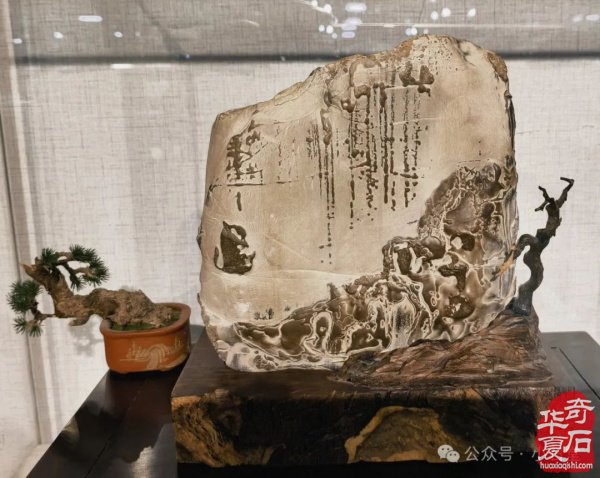 华夏
奇石
公众号 ·
huaxiaqishi.com